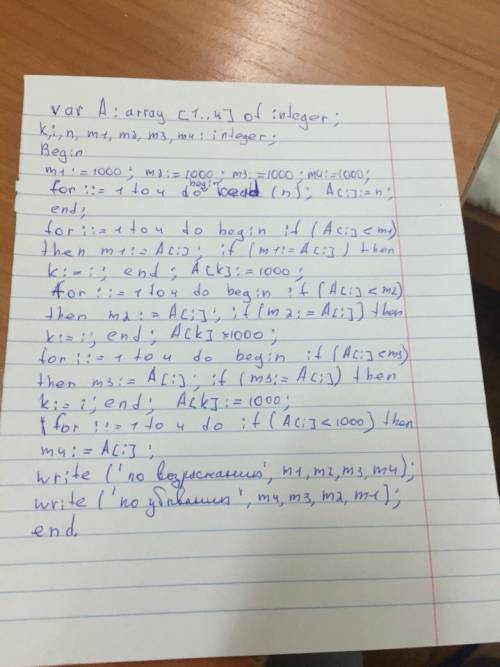 var A: array [1..4] of integer;
k,i,n, m1, m2, m3, m4: integer;
Begin
m1:=1000; m2:=1000; m3:=1000; m4:=1000;
for i:=1 to 4 do begin read (n); A[i]:=n;
end;
for i:=1 to 4 do begin if (A[i]<m1)
then m1:=A[i]; if (m1:=A[i]) then
k:=i; end; A[k]:=1000;
for i:=1 to 4 do begin if (A[i]<m2)
then m2:=A[i]; if (m2:=A[i]) then
k:=i; end; A[k]:=1000;
for i:=1 to 4 do begin if (A[i]<m3)
then m3:=A[i]; if (m3:=A[i]) then
k:=i; end; A[k]:=1000;
for i:=1 to 4 do if (A[i]<1000) then
m4:=A[i];
write ('по возрастанию', m1, m2, m3, m4);
write ('по убыванию', m4, m3, m2, m1);
end.